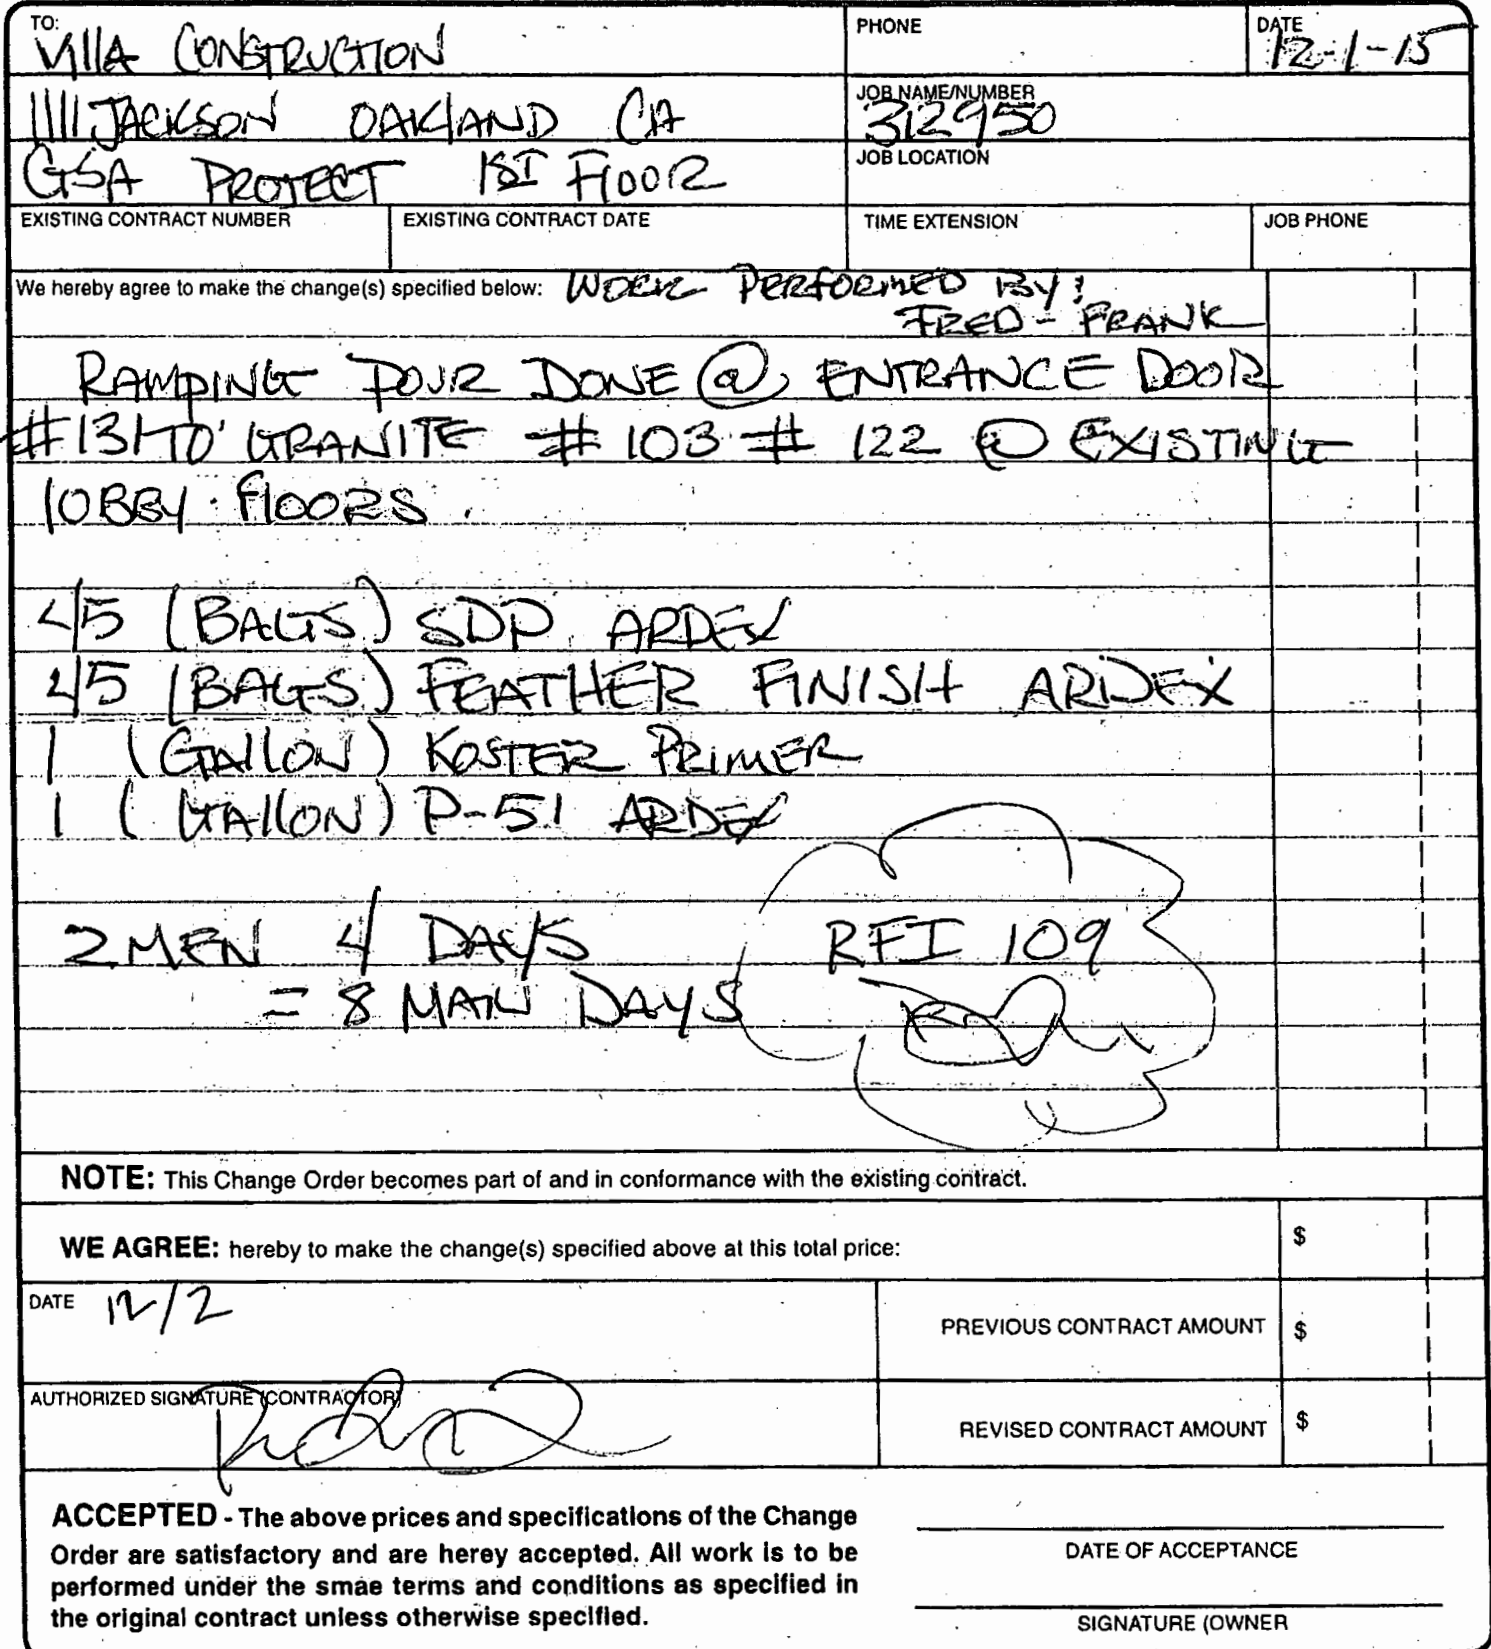 TO: VIllA CONSTRUCTION
PHONE
DATE 12-1-15
1111 JACKSON OAKlAND CA
JOB NAME/NUMBER 312950
GSA PROJECT 1ST FlOOR
JOB LOCATION
EXISTING CONTRACT NUMBER
EXISTING CONTRACT DATE
TIME EXTENSION
JOB PHONE
We hereby agree to make the change(s) specified below: WORK PERFORMED BY:
FRED - FRANK
RAMPING POUR DONE @ ENTRANCE DOOR
#131 TO GRANITE # 103 # 122 @ EXISTING
lOBBY FlOORS.
45 (BAGS) SDP ARDEX
45 (BAGS) FEATHER FINISH ARDEX
1 (GAllON) KOSTER PRIMER
1 (GAllON) P-51 ARDEX
2 MEN 4 DAYS
RFI 109
= 8 MAN DAYS
NOTE: This Change Order becomes part of and in conformance with the existing contract.
WE AGREE: hereby to make the change(s) specified above at this total price:
$
DATE 12/2
PREVIOUS CONTRACT AMOUNT $
AUTHORIZED SIGNATURE (CONTRACTOR)
REVISED CONTRACT AMOUNT $
ACCEPTED - The above prices and specifications of the Change
Order are satisfactory and are herey accepted. All work is to be
performed under the smae terms and conditions as specified in
the original contract unless otherwise specified.
DATE OF ACCEPTANCE
SIGNATURE (OWNER